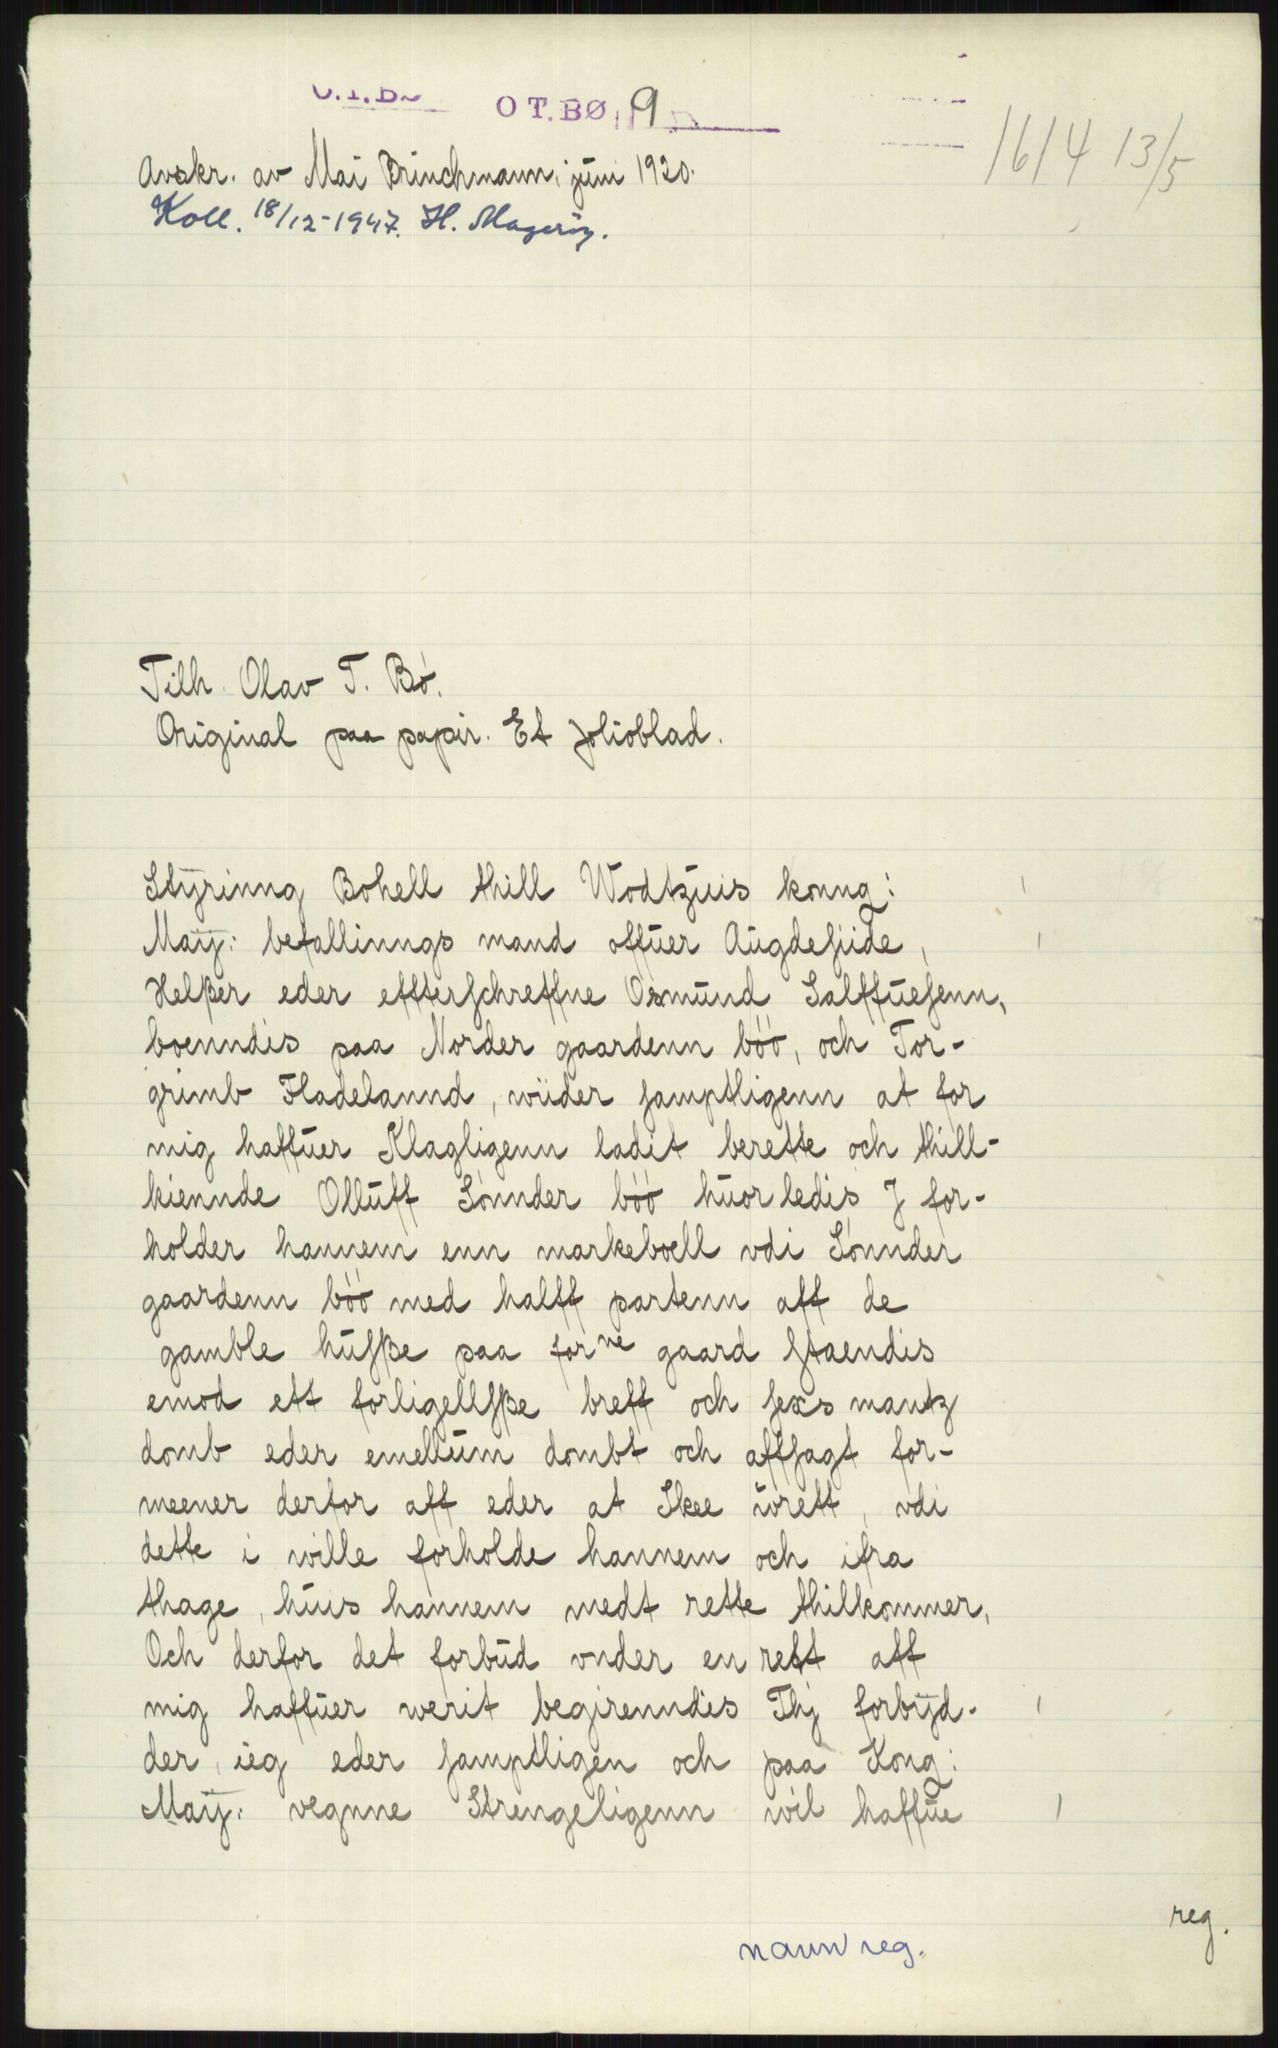 O T. BØ 9
1614 13/5
Avskr. av Mai Brinchmann, juni 1920.
Koll. 18/12-1947. H. Magerøy.
Tilh. Olav T. Bø.
Original paa papir. Et folioblad.
Styrinng Bohell thill Wodtzuis konng:
Maÿ: befallinngs mand offuer Augdesiide,
Helßer eder effterschreffne Osmund Salffuesenn,
boenndis paa Norder gaardenn böö, och Tor-
grimb Fladelannd, wiider samptligenn at for
mig haffuer Klagligenn ladit berette och thill-
kiennde Olluff Sønnder böö huorledis J for-
holder hannem enn markeboell vdi Sønnder
gaardenn böö med halff partenn aff de
gamble husße paa forne gaard staendis
emod ett forligellsße breff och sexs mantz
domb eder emellum dombt och affsagt for-
meener derfor aff eder at Skee ūrett, vdi
dette i wille forholde hannem och ifra
thage, huis hannem medt rette thillkommer,
Och derfor det forbud vnder en rett aff
mig haffuer werit begirenndis Thj forbÿd-
der ieg eder samptligen och paa Kong:
Maÿ: vegnne Strengeligenn wil haffue
reg.
navnreg.